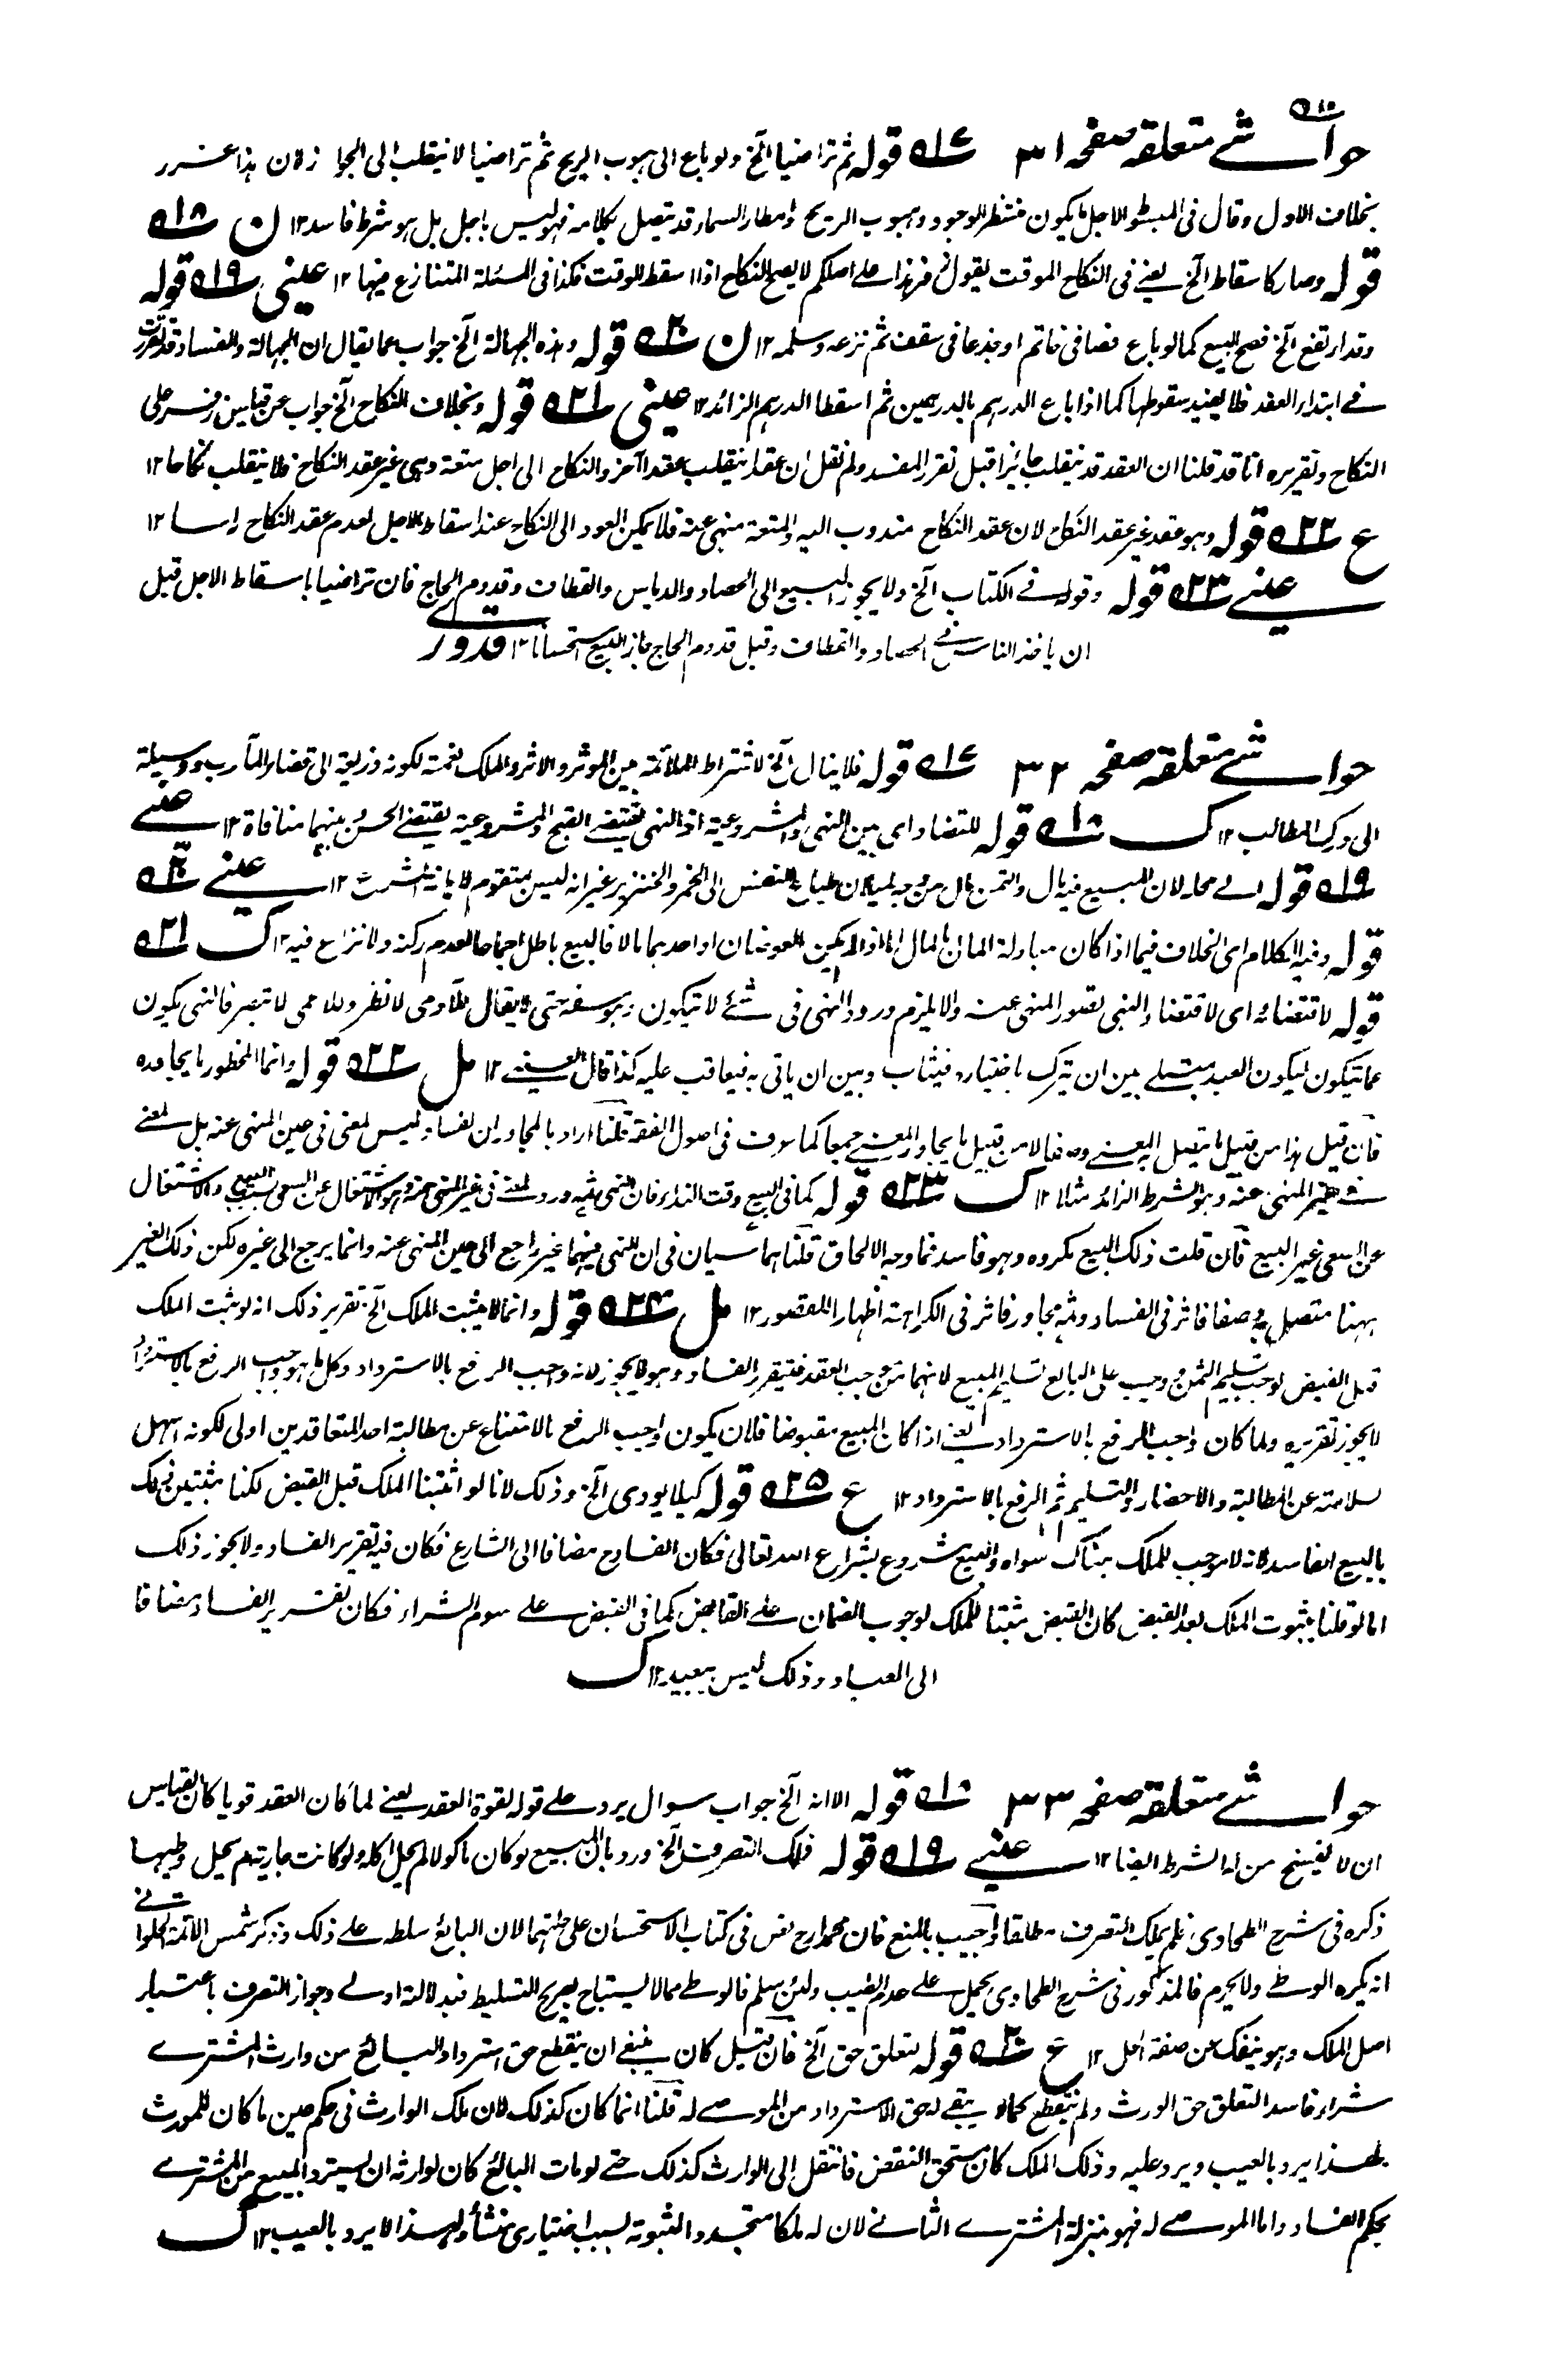 حواشے متعلقہ صفحہ ۳۱ ؁۱۷ قولہ ثم تراضیا الخ ولو باع الی ہبوب الریح ثم تراضیا لا ینقلب الی الجواز لان ہذا غرر
بخلاف الاول وقال فی المبسوط الاجل ما یکون منتظر الوجود وہبوب الریح وامطار السماء قد یتصل بکلامہ فہو لیس باجل بل ہو شرط فاسد ۱۲ ن ؁۱۸
قولہ وصار کاسقاط الخ یعنے فی النکاح الموقت یقول زفر ہذا علے اصلکم لا یصح النکاح اذا اسقط الوقت فکذا فی المسئلة المتنازع فیہا ۱۲ عینی ؁۱۹ قولہ
وقد ارتفع الخ فصح البیع کما لو باع فصا فی خاتم او جذعا فی سقف ثم نزعہ وسلمہ ۱۲ ن ؁۲۰ قولہ وہذہ الجہالة الخ جواب عما یقال ان الجہالة والفساد قد تقررت
فے ابتداء العقد فلا یفید سقوطہا کما اذا باع الدرہم بالدرہمین ثم اسقطا الدرہم الزائد ۱۲ عینی ؁۲۱ قولہ وبخلاف النکاح الخ جواب عن قیاس زفر علی
النکاح وتقریرہ انا قد قلنا ان العقد قد ینقلب جائزا قبل تقرر المفسد ولم نقل ان عقدا ینقلب عقدا آخر والنکاح الی اجل متعة وہی غیر عقد النکاح فلا ینقلب نکاحا ۱۲
ع ؁۲۲ قولہ وہو عقد غیر عقد النکاح لان عقد النکاح مندوب الیہ والمتعة منہی عنہ فلا یمکن العود الی النکاح عند اسقاط الاجل لعدم عقد النکاح راسا ۱۲
عینے ؁۲۳ قولہ وقولہ فے الکتاب الخ ولا یجوز البیع الی الحصاد والدیاس والقطاف وقدوم الحاج فان تراضیا باسقاط الاجل قبل
ان یاخذ الناس فے الحصاد والقطاف وقبل قدوم الحاج جاز البیع استحسانا ۱۲ قدوری
حواشے متعلقہ صفحہ ۳۲ ؁۱۷ قولہ فلا ینال الخ لاشتراط الملائمة بین الموثر والاثر والملک نعمة لکونہ ذریعة الی قضاء المآرب ووسیلة
الی درک المطالب ۱۲ ک ؁۱۸ قولہ للتضاد ای بین النہی والمشروعیة اذ النہی یقتضے القبح والمشروعیة یقتضے الحسن وبینہما منافاة ۱۲ عینے
؁۱۹ قولہ فے محلہ لان المبیع فیہ مال والثمن مال من وجہ لمیلان طباع النفس الی الخمر والخنزیر غیر انہ لیس بمتقوم لاہانة الشرع ۱۲ عینے ؁۲۰
قولہ وفیہ الکلام ای الخلاف فیما اذا کان مبادلة المال بالمال اما اذا لم یکن العوضان او احدہما مالا فالبیع باطل اجماعا لعدم رکنہ ولا نزاع فیہ ۱۲ ک ؁۲۱
قولہ لاقتضائہ ای لاقتضاء النہی تصور المنہی عنہ والا یلزم ورود النہی فی شے لا یتکون وہو سفہ حتی لا یقال للآدمی لا تطر وللاعمی لا تبصر فالنہی یکون
عما یتکون لیکون العبد مبتلے بین ان یترک باختیارہ فیثاب وبین ان یاتی بہ فیعاقب علیہ کذا قال العینے ۱۲ مل ؁۲۲ قولہ وانما المحظور ما یجاورہ
فان قیل ہذا من قبیل ما یتصل بہ المعنے وصفا لا من قبیل ما یجاورہ المعنے جمعا کما عرف فی اصول الفقہ قلنا اراد بالمجاور ان الفساد لیس لمعنی فی عین المنہی عنہ بل لمعنے
فے غیر المنہی عنہ وہو الشرط الزائد مثلا ۱۲ ک ؁۲۳ قولہ کما فی البیع وقت النداء فان النہی ثمہ ورد لمعنے فی غیر المنہی عنہ وہو الاشتغال عن السعی بسبب البیع والاشتغال
عن السعی غیر البیع فان قلت ذلک البیع مکروہ وہو فاسد فما وجہ الالحاق قلنا ہما سیان فی ان النہی فیہما غیر راجع الی عین المنہی عنہ وانما یرجع الی غیرہ لکن ذلک الغیر
ہہنا متصل بہ وصفا فاثر فی الفساد وثمہ مجاور فاثر فی الکراہة اظہارا للقصور ۱۲ مل ؁۲۴ قولہ وانما لا یثبت الملک الخ تقریر ذلک انہ لو یثبت الملک
قبل القبض لوجب تسلیم الثمن ووجب علی البائع تسلیم المبیع لانہما من موجب العقد فیتقرر الفساد وہو لا یجوز لانہ واجب الرفع بالاسترداد وکل ما ہو واجب الرفع بالاسترداد
لا یجوز تقریرہ ولما کان واجب الرفع بالاسترداد یعنے اذا کان المبیع مقبوضا فلان یکون واجب الرفع بالامتناع عن مطالبة احد المتعاقدین اولی لکونہ اسہل
لسلامتہ عن المطالبة والاحضار والتسلیم ثم الرفع بالاسترداد ۱۲ ع ؁۲۵ قولہ کیلا یودی الخ وذلک لانا لو اثبتنا الملک قبل القبض لکنا مثبتین للملک
بالبیع الفاسد لانہ لا موجب للملک ہناک سواہ والبیع مشروع بشرع اللہ تعالی فکان الفساد ح مضافا الی الشارع فکان فیہ تقریر الفساد ولا یجوز ذلک
اما لو قلنا بثبوت الملک بعد القبض کان القبض مثبتا للملک لوجوب الضمان علے القابض کما فی القبض علے سوم الشراء فکان تقریر الفساد مضافا
الی العباد وذلک لیس ببعید ۱۲ ک
حواشے متعلقہ صفحہ ۳۳ ؁۱۸ قولہ الا انہ الخ جواب سوال یرد علے قولہ لقوة العقد یعنے لما کان العقد قویا کان القیاس
ان لا یفسخ من لہ الشرط ایضا ۱۲ عینے ؁۱۹ قولہ فملک التصرف الخ ورد بان المبیع لو کان ماکولا لم یحل اکلہ ولو کانت جاریة لم یحل وطیہا
ذکرہ فی شرح الطحاوی فلم یملک التصرف مطلقا واجیب بالمنع فان محمدا رح نص فی کتاب الاستحسان علی حلہما لان البائع سلطہ علے ذلک وذکر شمس الائمة الحلوانے
انہ یکرہ الوطے ولا یحرم فالمذکور فی شرح الطحاوی یحمل علے عدم الطیب ولئن سلم فالوطے مما لا یستباح بصریح التسلیط فبدلالتہ اولے وجواز التصرف باعتبار
اصل الملک وہو ینفک عن صفة الحل ۱۲ ع ؁۲۰ قولہ لتعلق حق الخ فان قیل کان ینبغے ان ینقطع حق استرداد البائع من وارث المشترے
شراء فاسدا لتعلق حق الورث ولم ینقطع کما لا یبقے لہ حق الاسترداد من الموصے لہ قلنا انما کان کذلک لان ملک الوارث فی حکم عین ما کان للمورث
ولہذا یرد بالعیب ویرد علیہ وذلک الملک کان مستحق النقض فانتقل الی الوارث کذلک حتے لو مات البائع کان لوارثہ ان یسترد المبیع من المشترے
بحکم الفساد واما الموصے لہ فہو بمنزلة المشترے الثانے لان لہ ملکا متجدد الثبوتہ بسبب اختیاری منشأ ولہذا لا یرد بالعیب ۱۲ ک